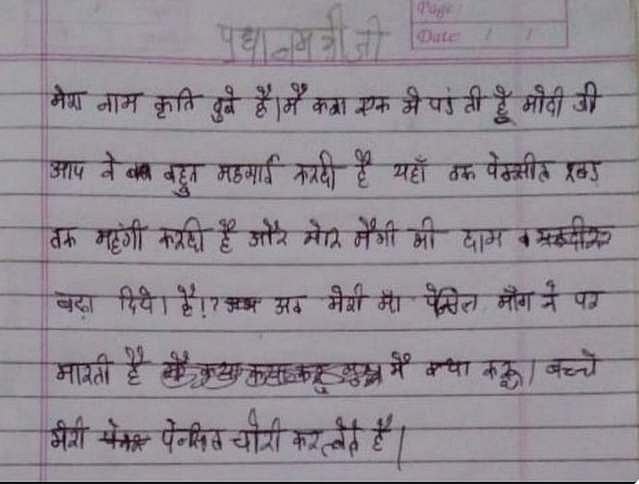 Page:
प्रधानमंत्री जी
Date: / /
मेरा नाम कृति दुबे है। मै कक्षा एक मे पड़ ती हूँ मोदी जी
आप ने बहुत महगाई करदी है यहाँ तक पेन्सील रबड़
तक महंगी करदी है और मेरि मैगी भी दाम
बढ़ा दिये। है!? अब मेरी माँ पेन्सिल माँग ने पर
मारती है मैं क्या करू। बच्चे
मेरी पेन्सिल चोरी करलेते है।